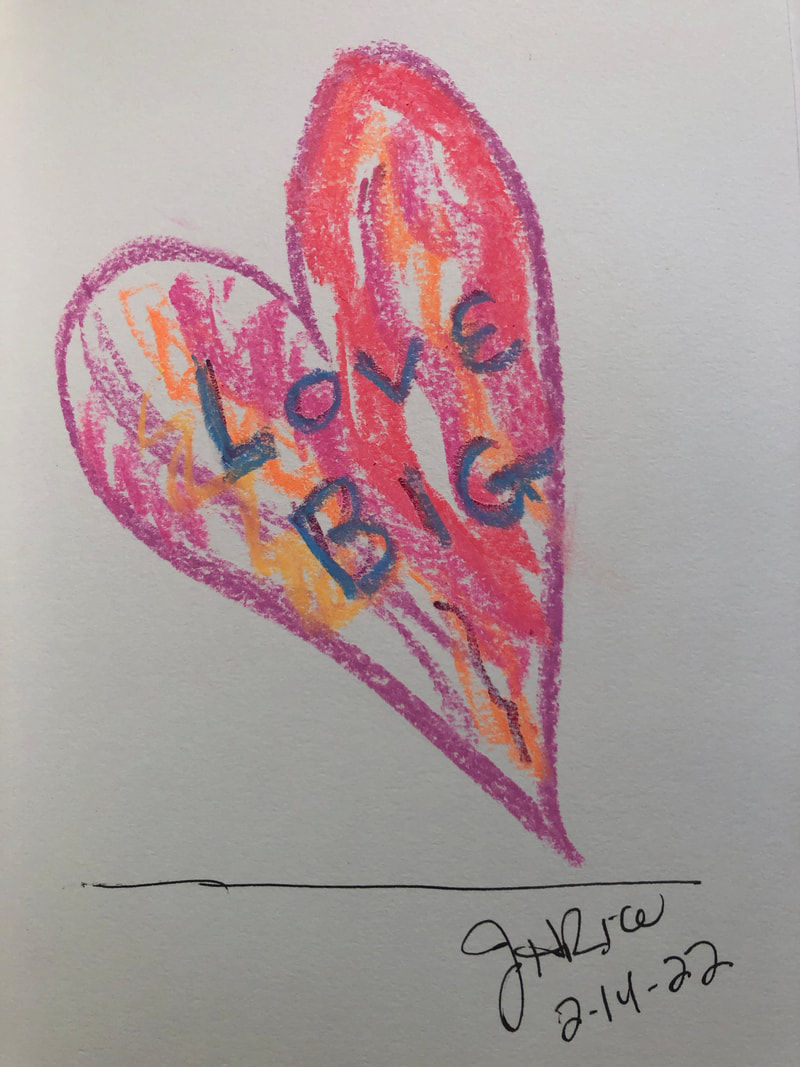 LOVE
BIG
2-14-22